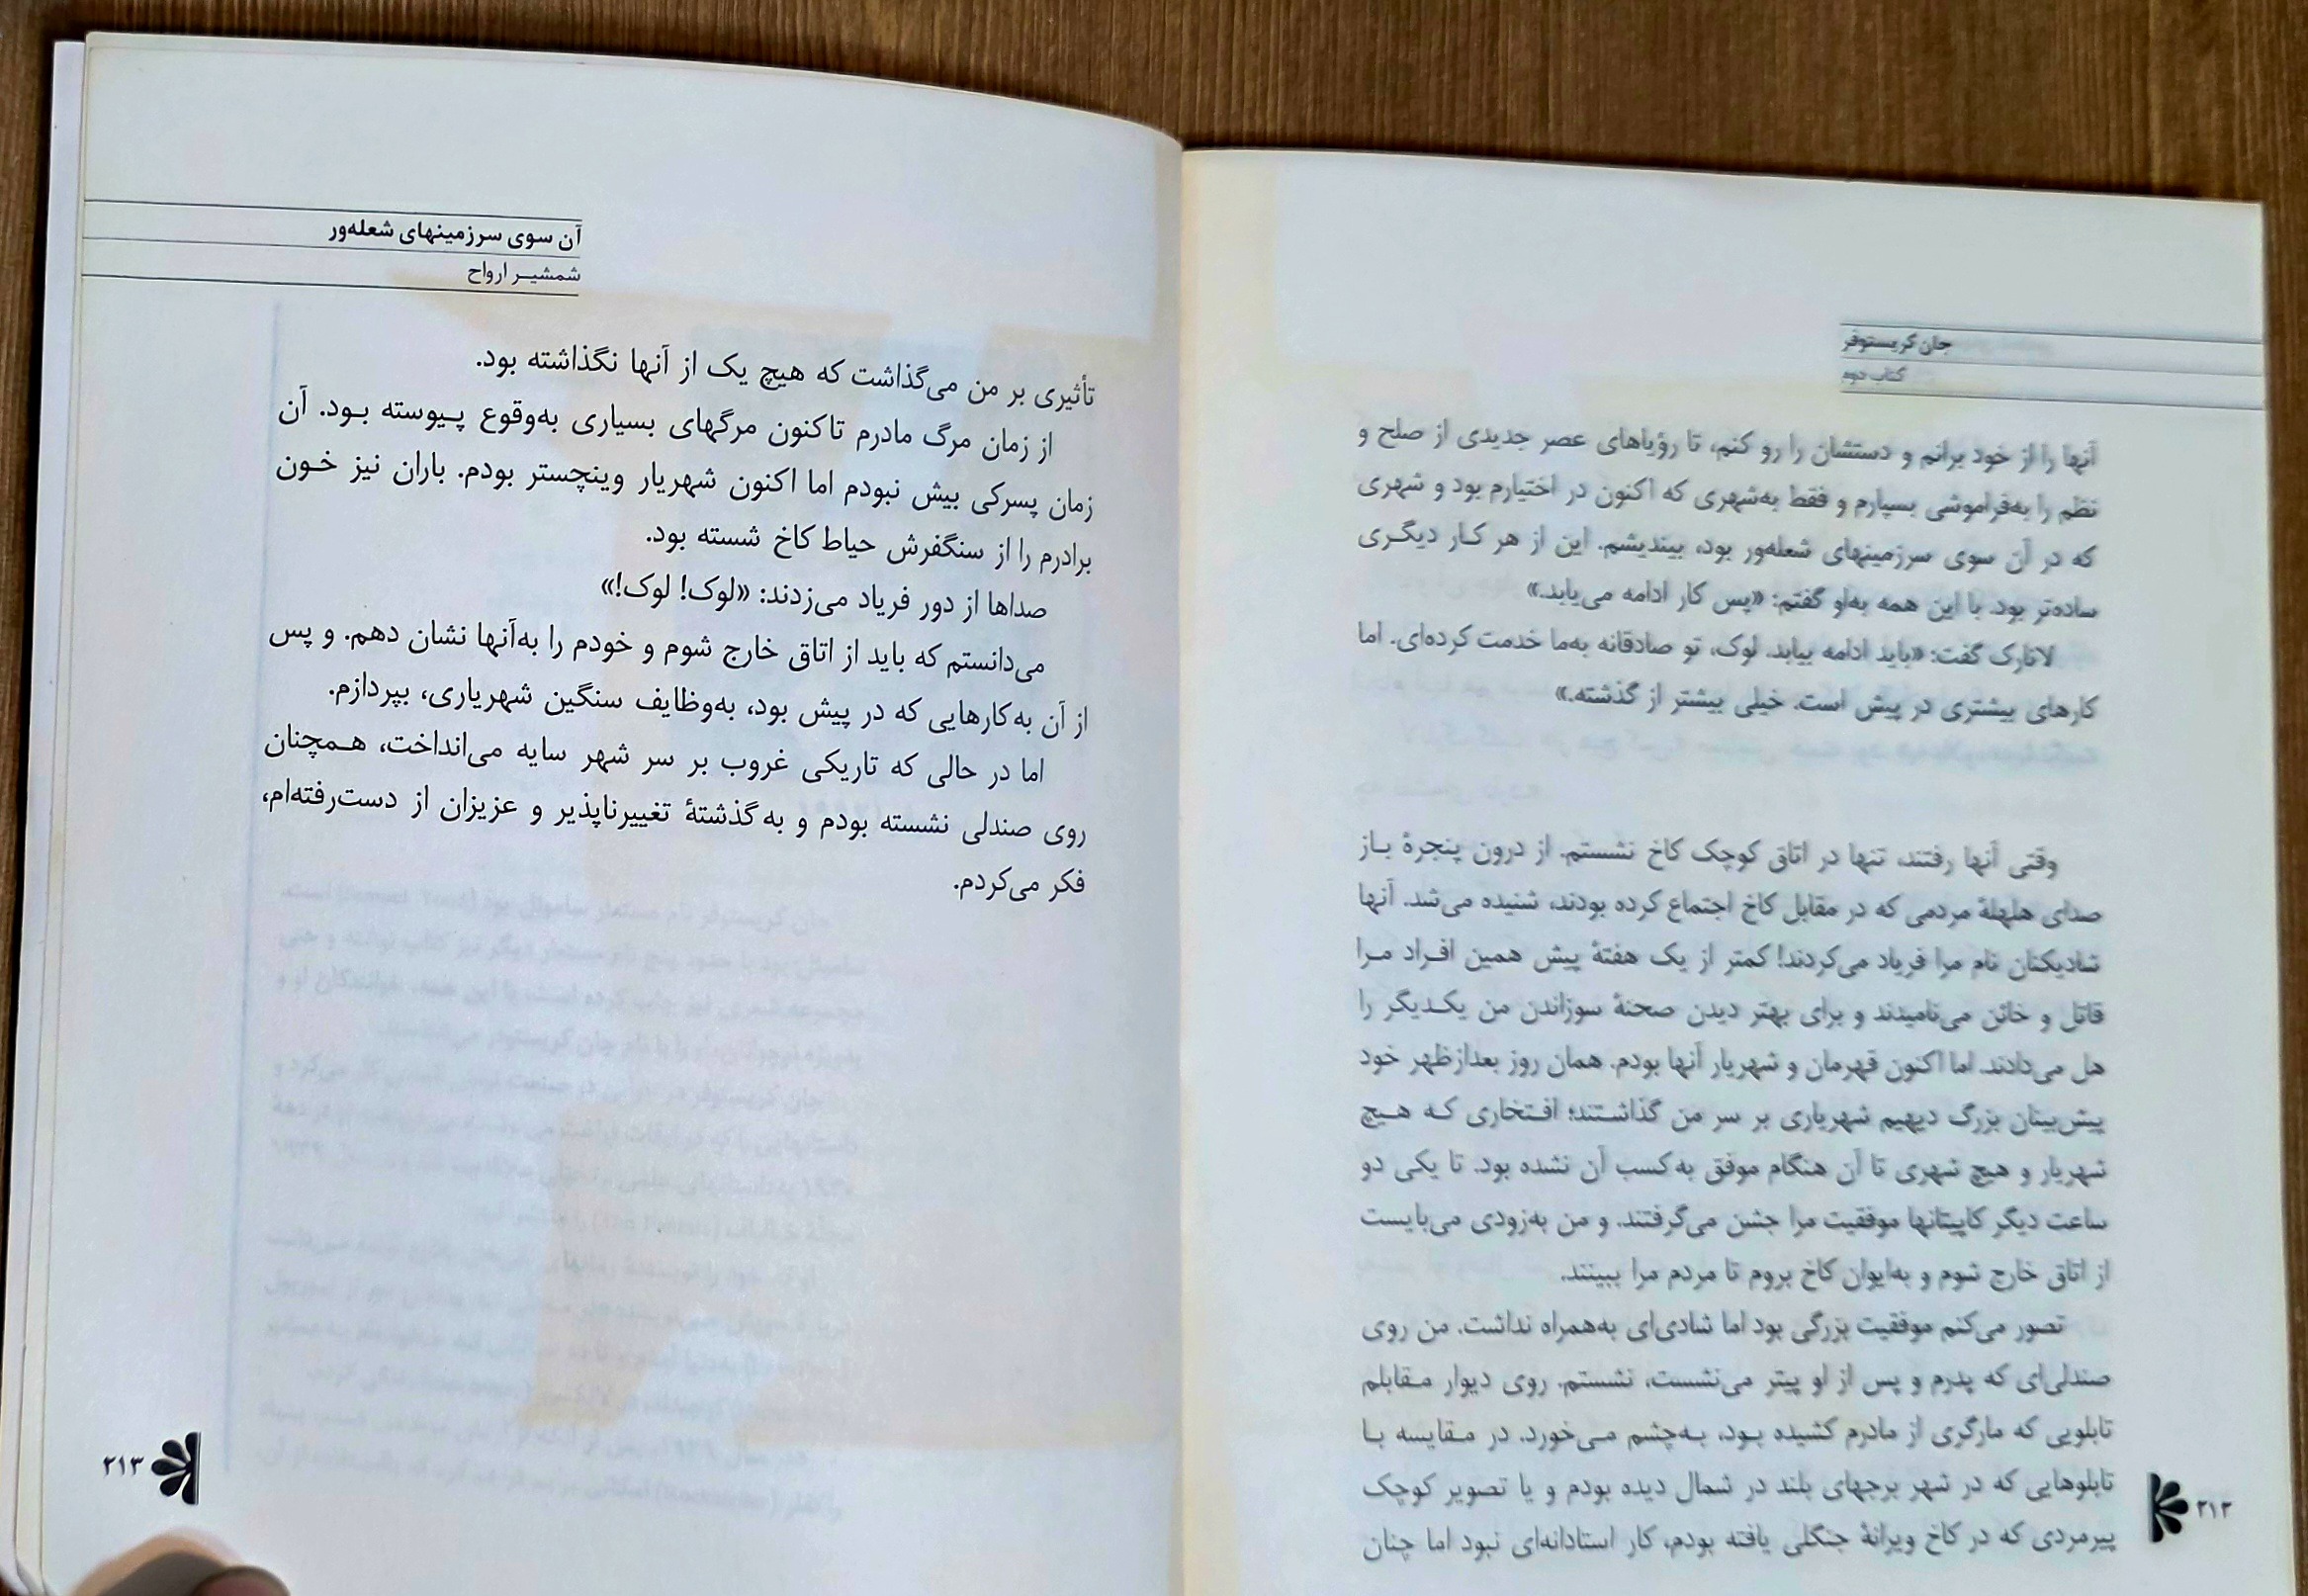 جان کریستوفر
کتاب دوم
آنها را از خود برانم و دستشان را رو کنم، تا رؤیاهای عصر جدیدی از صلح و
نظم را به‌فراموشی بسپارم و فقط به‌شهری که اکنون در اختیارم بود و شهری
که در آن سوی سرزمینهای شعله‌ور بود، بیندیشم. این از هر کار دیگری
ساده‌تر بود. با این همه به‌او گفتم: «پس کار ادامه می‌یابد.»
لانارک گفت: «باید ادامه بیابد. لوک، تو صادقانه به‌ما خدمت کرده‌ای. اما
کارهای بیشتری در پیش است. خیلی بیشتر از گذشته.»
وقتی آنها رفتند، تنها در اتاق کوچک کاخ نشستم. از درون پنجرهٔ باز
صدای هلهلهٔ مردمی که در مقابل کاخ اجتماع کرده بودند، شنیده می‌شد. آنها
شادیکنان نام مرا فریاد می‌کردند! کمتر از یک هفتهٔ پیش همین افراد مرا
قاتل و خائن می‌نامیدند و برای بهتر دیدن صحنهٔ سوزاندن من یکدیگر را
هل می‌دادند. اما اکنون قهرمان و شهریار آنها بودم. همان روز بعدازظهر خود
پیش‌بینان بزرگ دیهیم شهریاری بر سر من گذاشتند؛ افتخاری که هیچ
شهریار و هیچ شهری تا آن هنگام موفق به کسب آن نشده بود. تا یکی دو
ساعت دیگر کاپیتانها موفقیت مرا جشن می‌گرفتند. و من به‌زودی می‌بایست
از اتاق خارج شوم و به‌ایوان کاخ بروم تا مردم مرا ببینند.
تصور می‌کنم موفقیت بزرگی بود اما شادی‌ای به‌همراه نداشت. من روی
صندلی‌ای که پدرم و پس از او پیتر می‌نشست، نشستم. روی دیوار مقابلم
تابلویی که مارگری از مادرم کشیده بود، به‌چشم می‌خورد. در مقایسه با
تابلوهایی که در شهر برجهای بلند در شمال دیده بودم و یا تصویر کوچک
پیرمردی که در کاخ ویرانهٔ جنگلی یافته بودم، کار استادانه‌ای نبود اما چنان
۲۱۲
آن سوی سرزمینهای شعله‌ور
شمشیر ارواح
تأثیری بر من می‌گذاشت که هیچ یک از آنها نگذاشته بود.
از زمان مرگ مادرم تاکنون مرگهای بسیاری به‌وقوع پیوسته بود. آن
زمان پسرکی بیش نبودم اما اکنون شهریار وینچستر بودم. باران نیز خون
برادرم را از سنگفرش حیاط کاخ شسته بود.
صداها از دور فریاد می‌زدند: «لوک! لوک!»
می‌دانستم که باید از اتاق خارج شوم و خودم را به‌آنها نشان دهم. و پس
از آن به کارهایی که در پیش بود، به‌وظایف سنگین شهریاری، بپردازم.
اما در حالی که تاریکی غروب بر سر شهر سایه می‌انداخت، همچنان
روی صندلی نشسته بودم و به گذشتهٔ تغییرناپذیر و عزیزان از دست‌رفته‌ام،
فکر می‌کردم.
۲۱۳